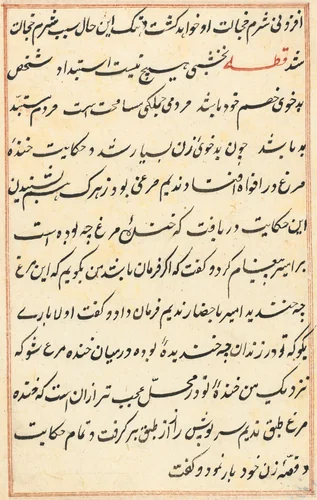 افزونی شرم خجالت او خواهد گشت اینک این حال سبب شرم خجالت
شد قطعه نخشبی هیچ نیست استبداد شخص
بدخوی خصم خود باشد مردمی جملگی مسامحت است مردم مستبد
بد باشد چون بدخوی آن زن بسیار شد و حکایت خندهٔ
مرغ در افواه افتاد ندیم مرغی بود زیرک هم بشنیدن
این حکایت دریافت که خندهٔ مرغ چه بوده است
بر امیر پیغام کرد و گفت که اگر فرمان باشد من بگویم که این مرغ
چه خندید امیر باحضار ندیم فرمان داد و گفت اول بارے
بگو که تو در زندان چه خندیدهٔ بوده و در میان خنده مرغ شو که
نزدیک من خندهٔ تو در محل عجیب تر ازان است که خنده
مرغ طبق ندیم سرپوش راز از طبق برگرفت و تمام حکایت
و قصهٔ زن خود باز نمود و گفت